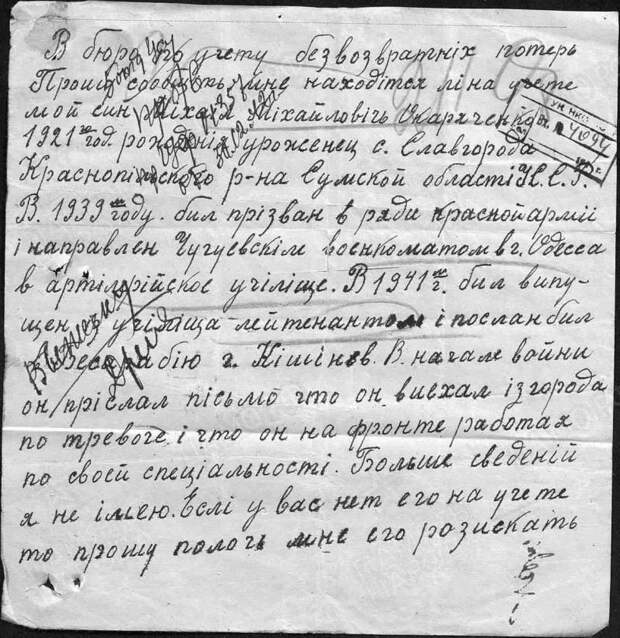 В бюро по учету безвозвратніх потерь
Прошу сообщіть мне находітся лі на учете
мой син Міхаіл Міхайловічь Скаряченко
1921го год. рожденія уроженец с. Славгорода
Краснопільского р-на Сумской області У.С.С.Р.
В. 1939м году. бил прізван в ряди красной армії
і направлен Чугуевскім военкоматом в г. Одесса
в артілерійское учіліще. В 1941м г. бил випу-
щен із учіліща лейтенантом і послан бил
в Бесарабію г. Кішінев. В начале войни
он прісл­ал пісьмо что он виехал із города
по тревоге і что он на фронте работая
по своей спеціальності. Больше сведеній
я не імею. Еслі у вас нет его на учете
то прошу помочь мне его розискать
4094